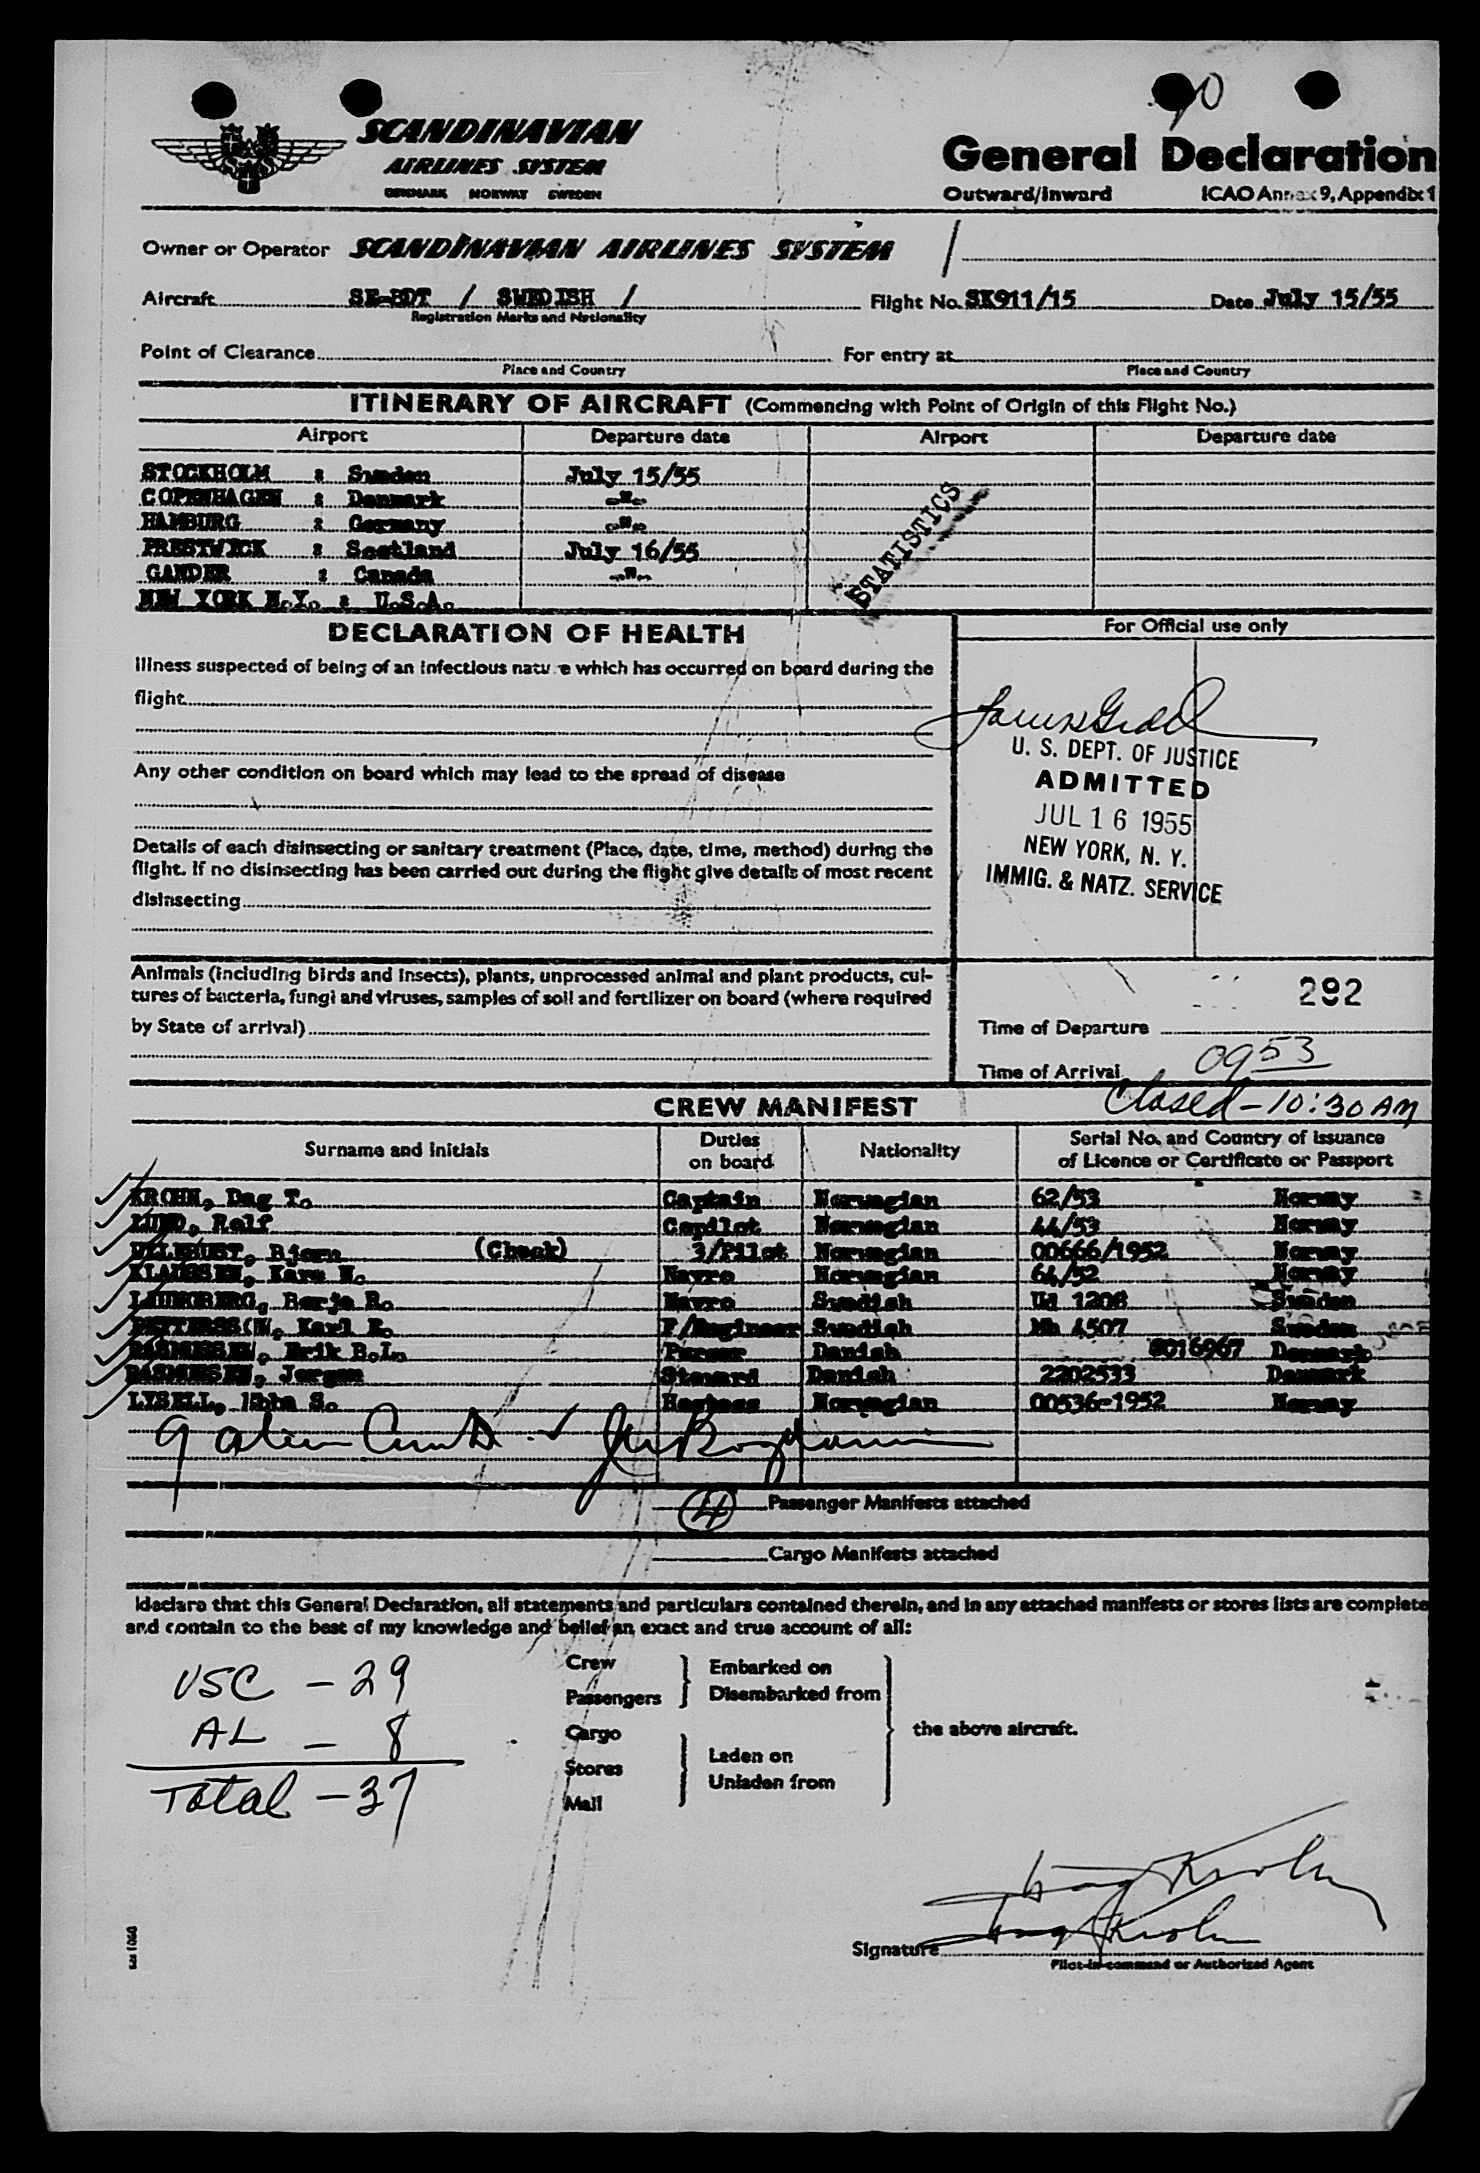 90
SCANDINAVIAN
AIRLINES SYSTEM
DENMARK NORWAY SWEDEN
General Declaration
Outward/Inward ICAO Annex 9, Appendix 1
Owner or Operator SCANDINAVIAN AIRLINES SYSTEM /
Aircraft SE-BDT / SWEDISH / Flight No. SK911/15 Date July 15/55
Registration Marks and Nationality
Point of Clearance For entry at
Place and Country Place and Country
ITINERARY OF AIRCRAFT (Commencing with Point of Origin of this Flight No.)
Airport Departure date Airport Departure date
STOCKHOLM : Sweden July 15/55
COPENHAGEN : Denmark -"-
HAMBURG : Germany -"-
PRESTWICK : Scotland July 16/55
GANDER : Canada -"-
NEW YORK N.Y. : U.S.A.
STATISTICS
DECLARATION OF HEALTH
For Official use only
Illness suspected of being of an infectious nature which has occurred on board during the
flight
Any other condition on board which may lead to the spread of disease
Details of each disinsecting or sanitary treatment (Place, date, time, method) during the
flight. If no disinsecting has been carried out during the flight give details of most recent
disinsecting
U. S. DEPT. OF JUSTICE
ADMITTED
JUL 16 1955
NEW YORK, N. Y.
IMMIG. & NATZ. SERVICE
Animals (including birds and insects), plants, unprocessed animal and plant products, cul-
tures of bacteria, fungi and viruses, samples of soil and fertilizer on board (where required
by State of arrival)
292
Time of Departure
Time of Arrival 0953
Closed - 10:30 AM
CREW MANIFEST
Surname and initials Duties on board Nationality Serial No. and Country of issuance of Licence or Certificate or Passport
KROHN, Dag T. Captain Norwegian 62/53 Norway
LUND, Rolf Copilot Norwegian 44/53 Norway
ULLEBUST, Bjorn (Check) 3/Pilot Norwegian 00666/1952 Norway
KLAUSSEN, Kare N. Navro Norwegian 64/52 Norway
LJUNGBERG, Borje R. Navro Swedish Ud 1208 Sweden
PETTERSSON, Karl E. F/Engineer Swedish Mh 4507 Sweden
RASMUSSEN, Erik B.L. Purser Danish 8016967 Denmark
RASMUSSEN, Jorgen Steward Danish 2202533 Denmark
LYSELL, Ebba S. Hostess Norwegian 00536-1952 Norway
9 alien
4 Passenger Manifests attached
Cargo Manifests attached
I declare that this General Declaration, all statements and particulars contained therein, and in any attached manifests or stores lists are complete
and contain to the best of my knowledge and belief an exact and true account of all:
USC - 29
AL - 8
Total - 37
Crew
Passengers
Embarked on
Disembarked from
Cargo
Stores
Mail
Laden on
Unladen from
the above aircraft.
Dag Krohn
Signature Dag Krohn
Pilot-in-command or Authorized Agent